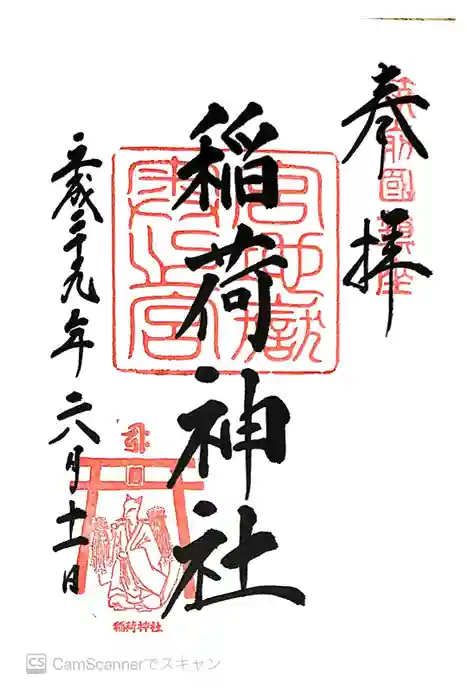 奉拝
稲荷神社
平成二十九年二八月十一日
稲荷神社
CS CamScannerでスキャン